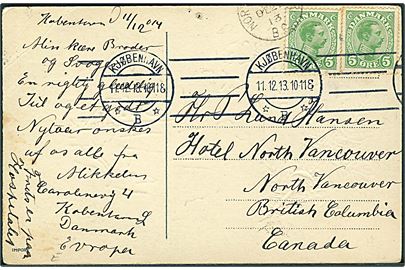 København d 11/12 1914
Min kære Broder
og Svoger
En rigtig glædelig
Jul og et godt
Nytaar ønskes
af os alle fra
Mikkelus
Carolinevej 4
København
Danmark
Evropa
Hospitalet
IMPOR
Hr Lund Hansen
Hotel North Vancouver
North Vancouver
British Columbia
Canada
KJØBENHAVN
11.12.13.10-11 F
B
KJØBENHAVN
11.12.13.10-11 F
B
NOR
DE
13
B
DANMARK
5 ØRE 5
DANMARK
5 ØRE 5